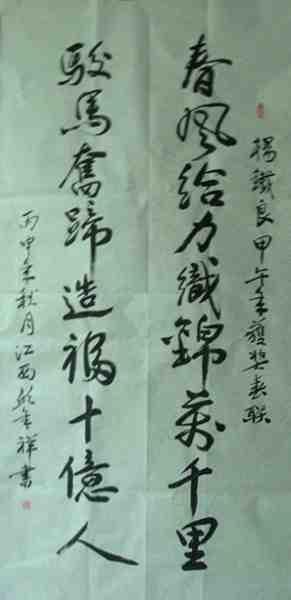 楊鐵良甲午年獲奖春联
春風给力織錦萬千里
駿馬奮蹄造福十億人
丙申年秋月江西祥書